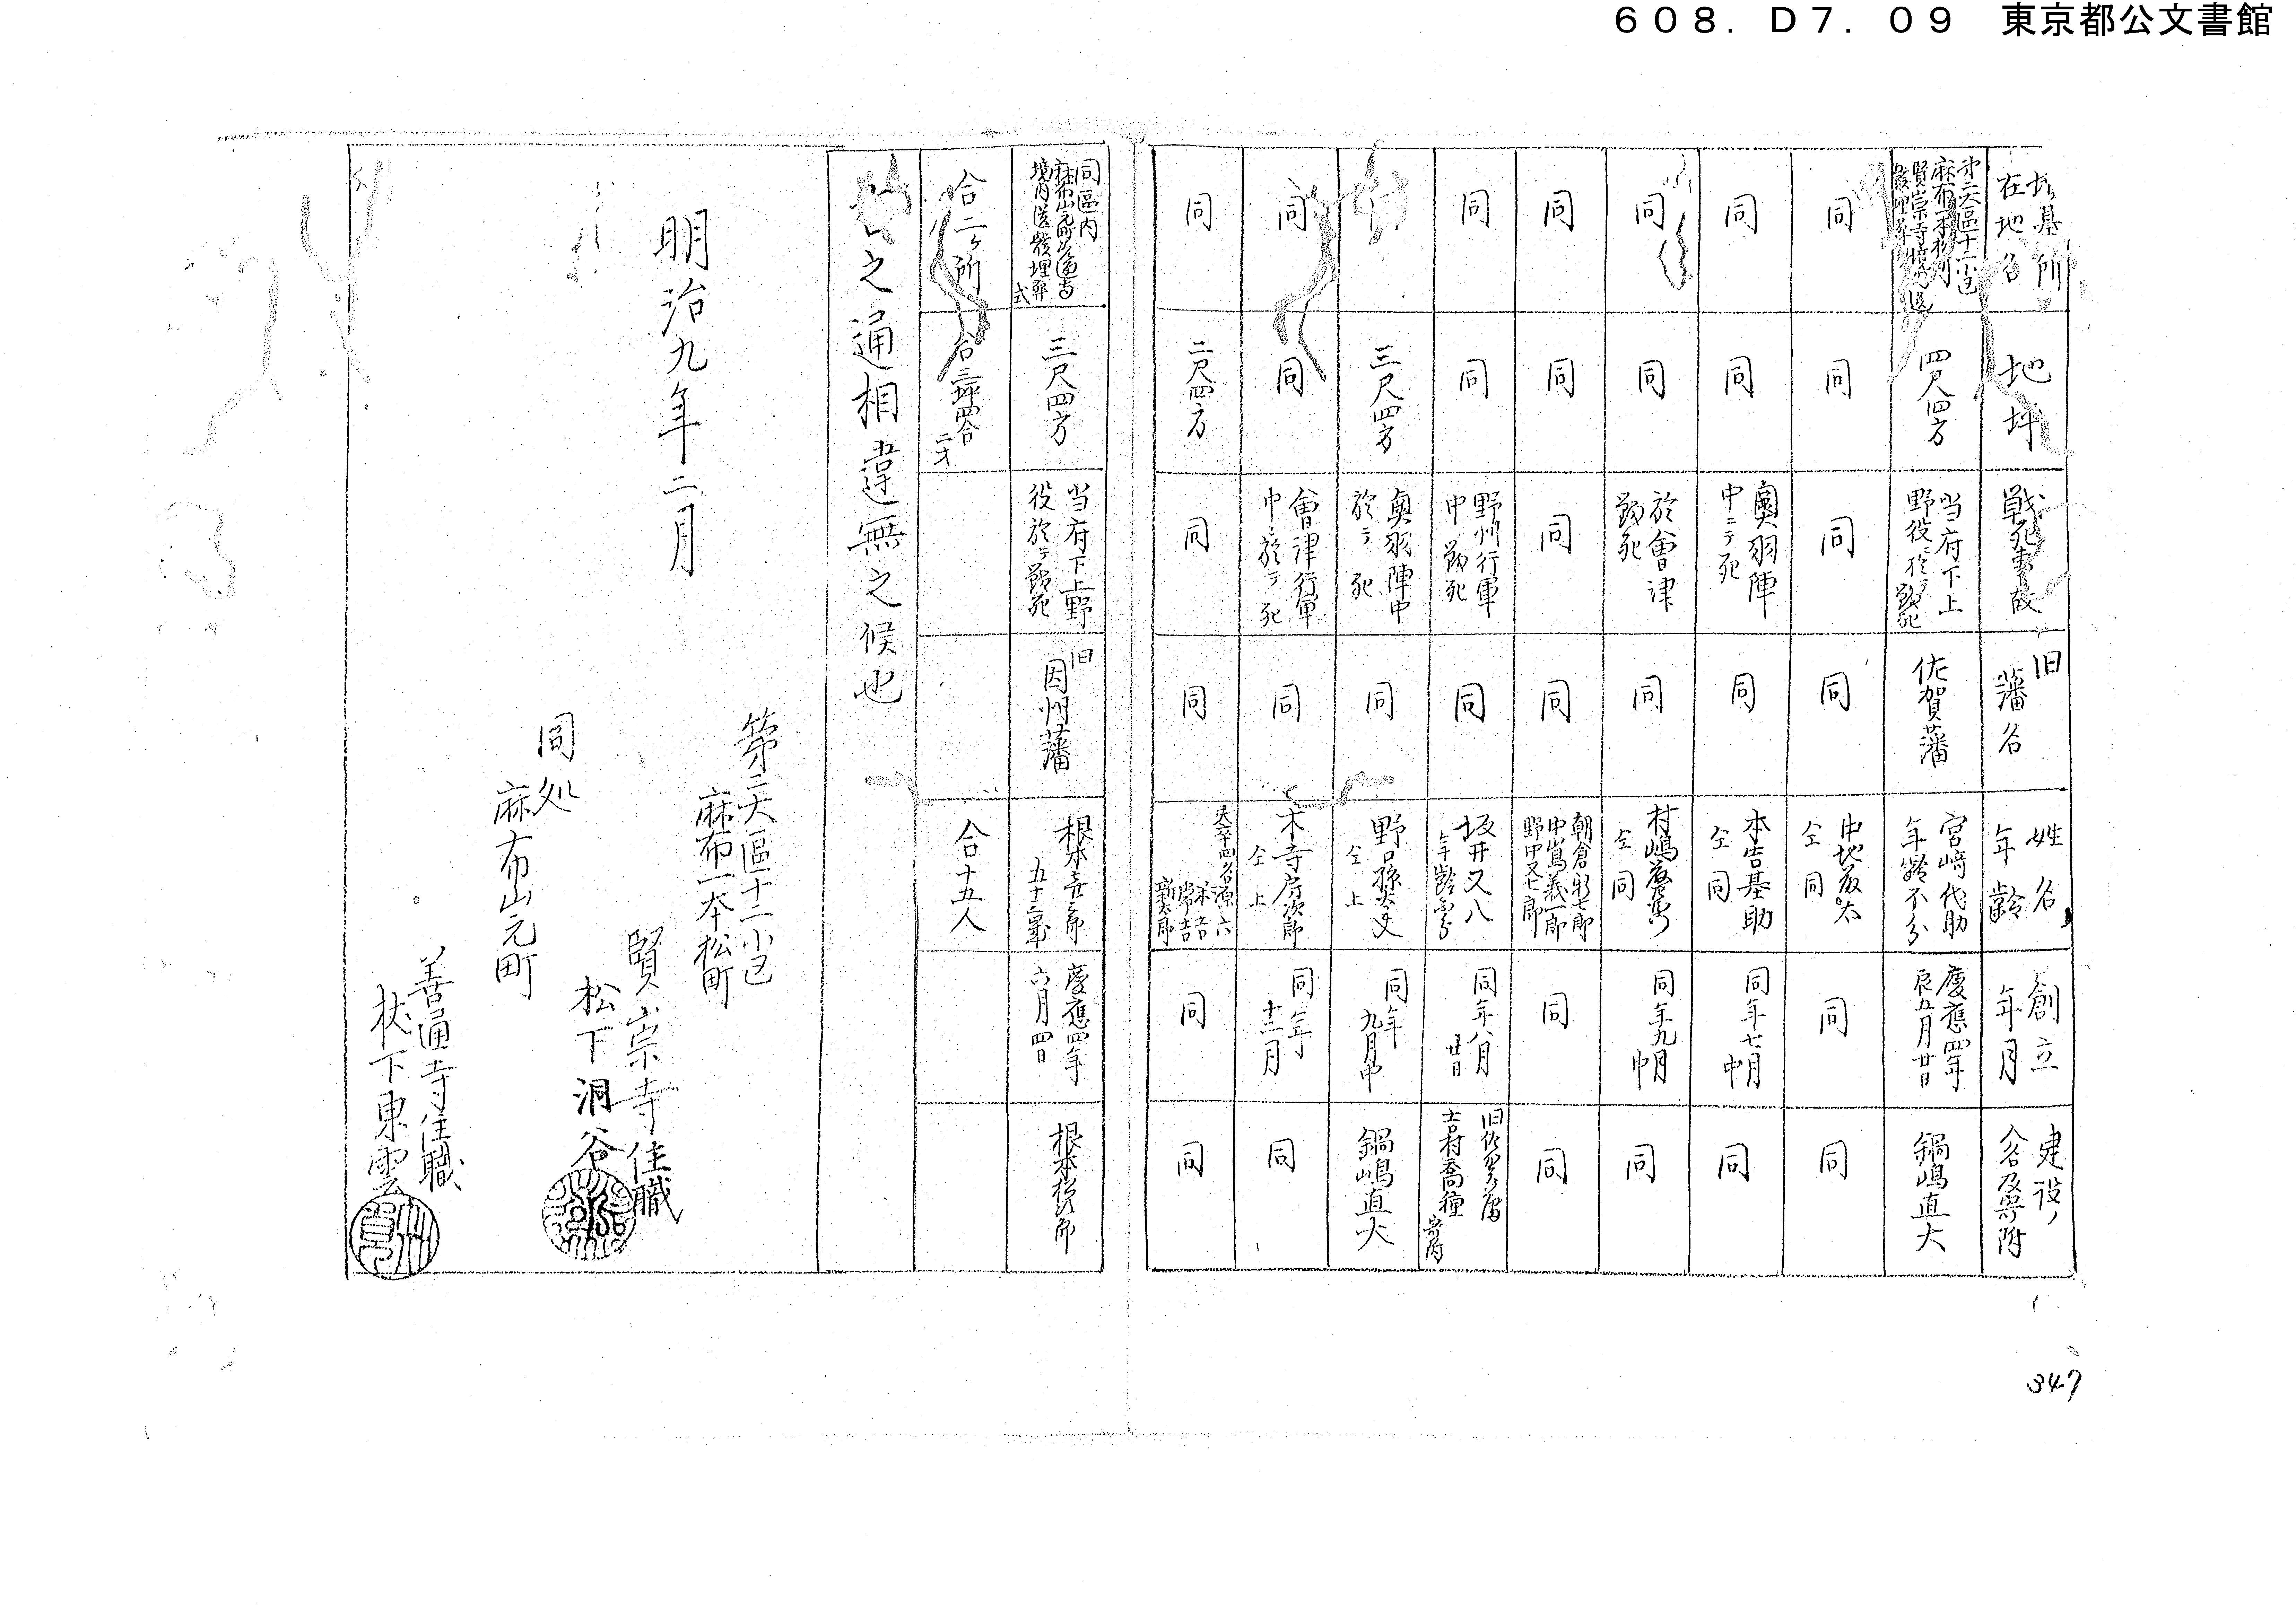 608. D7. 09 東京都公文書館
墓所
在地名
地坪
戦死事故
旧
藩名
姓名
年齢
創立
年月
建設ノ
人名及寄附
第二大區十二小区
麻布一本松町
賢崇寺境内
四尺四方
当府下上
野役ニ於テ戦死
佐賀藩
宮﨑代助
年齢不分
慶應四年
辰五月廿日
鍋嶋直大
同
同
同
同
仝同
同
同
同
同
奥羽陣
中ニテ死
同
本告基助
仝同
同年七月
中
同
同
同
於會津
戦死
同
仝同
同年九月
中
同
同
同
同
同
朝倉彩七郎
中嶌義一郎
野中又七郎
同
同
同
同
野州行軍
中戦死
同
坂井又八
同年八月
廿日
旧佐賀藩
士吉村喬種
寄附
三尺四方
奥羽陣中
於テ死
同
野口孫大夫
仝上
同年
九月中
鍋嶋直大
同
同
會津行軍
中ニ於テ死
同
木寺房次郎
仝上
同年
十二月
同
同
二尺四方
同
同
夫卒四名源六
米吉
常吉
新太郎
同
同
同區内
麻布山元町善通寺
境内送髪埋葬
式
三尺四方
当府下上野
役於テ戦死
旧
因州藩
慶應四年
六月四日
合二ヶ所
合三坪四合
二才
合十五人
之通相違無之候也
明治九年二月
第二大區十二小区
麻布一本松町
賢崇寺住職
松下洞谷
同処
麻布山元町
善通寺住職
杖下東雲
347